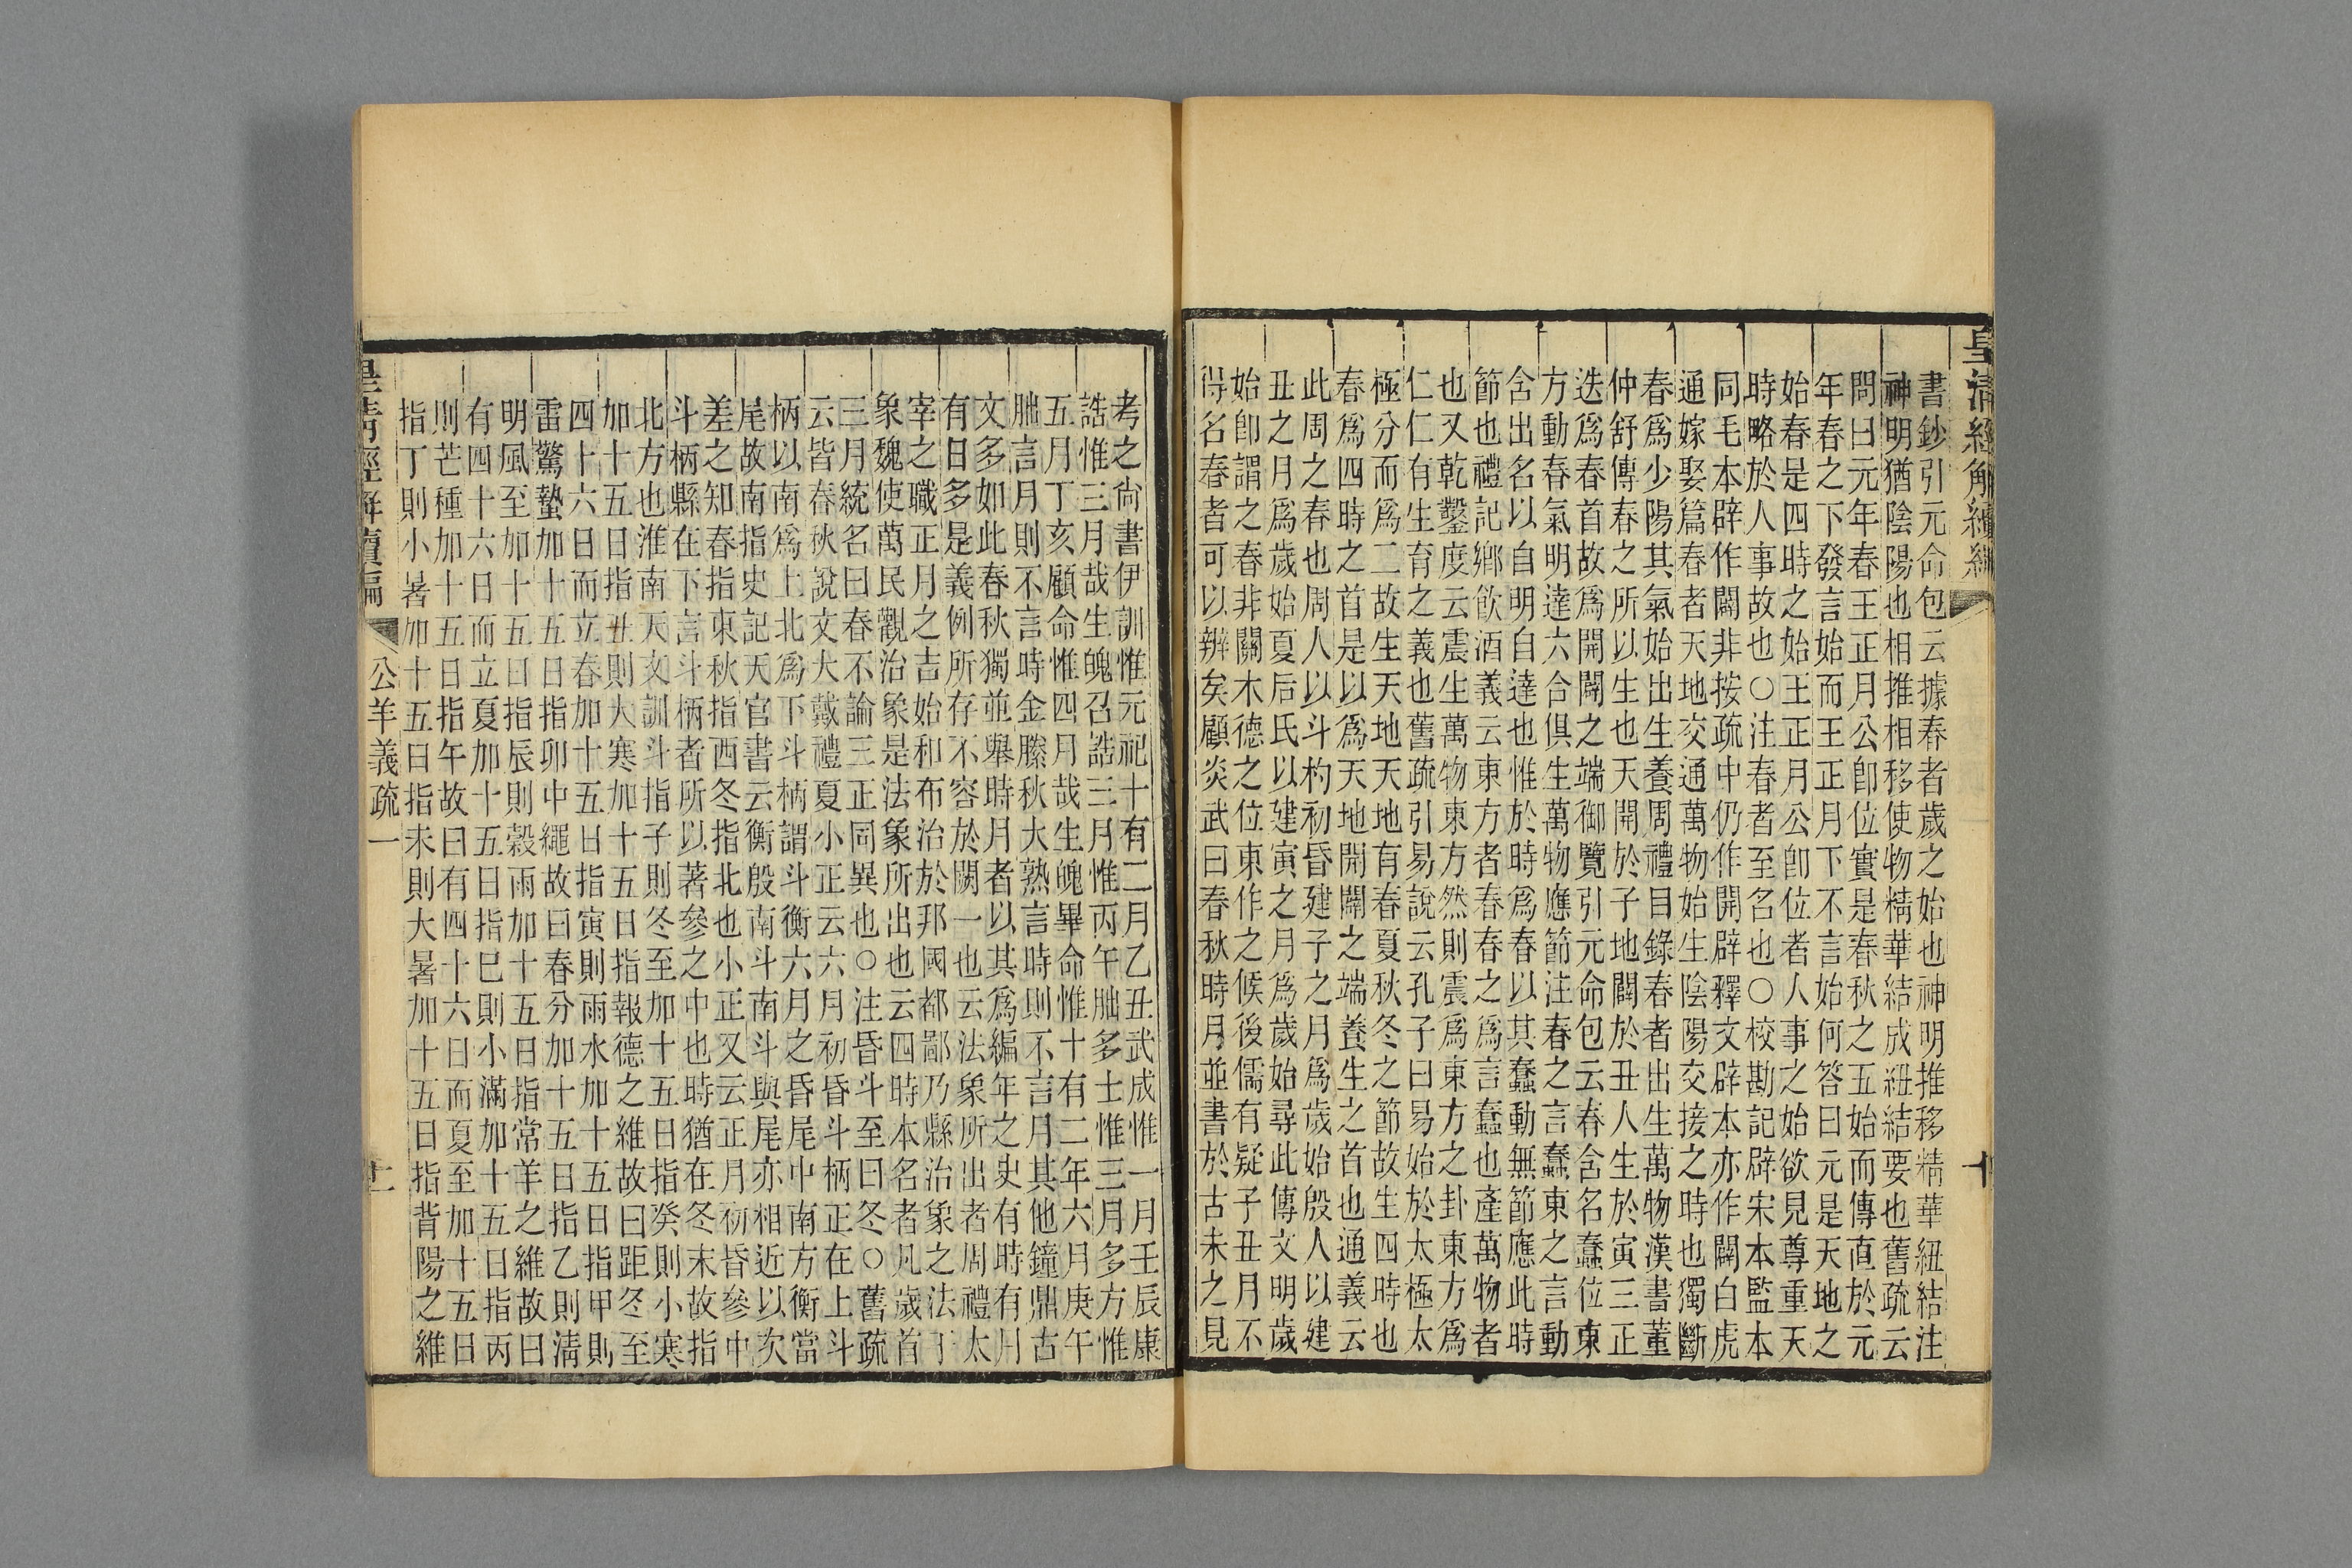 皇清經解續編
十
書鈔引元命包云據春者歲之始也神明推移精華紐結注
神明猶陰陽也相推相移使物精華結成紐結要也舊疏云
問曰元年春王正月公卽位實是春秋之五始而傳直於元
年春之下發言始而王正月下不言始何答曰元是天地之
始春是四時之始王正月公卽位者人事之始欲見尊重天
時略於人事故也○注春者至名也○校勘記辟宋本監本
同毛本辟作闢非按疏中仍作開辟釋文辟本亦作闢白虎
通嫁娶篇春者天地交通萬物始生陰陽交接之時也獨斷
春爲少陽其氣始出生養周禮目錄春者出生萬物漢書董
仲舒傳春之所以生也天開於子地闢於丑人生於寅三正
迭爲春首故爲開闢之端御覽引元命包云春含名蠢位東
方動春氣明達六合俱生萬物應節注春之言蠢東之言動
含出名以自明自達也惟於時爲春以其蠢動無節應此時
節也禮記鄉飲酒義云東方者春春之爲言蠢也產萬物者
也又乾鑿度云震生萬物東方然則震爲東方之卦東方爲
仁仁有生育之義也舊疏引易說云孔子曰易始於太極太
極分而爲二故生天地天地有春夏秋冬之節故生四時也
春爲四時之首是以爲天地開闢之端養生之首也通義云
此周之春也周人以斗杓初昏建子之月爲歲始殷人以建
丑之月爲歲始夏后氏以建寅之月爲歲始尋此傳文明歲
始卽謂之春非關木德之位東作之候後儒有疑子丑月不
得名春者可以辨矣顧炎武曰春秋時月並書於古未之見
考之尙書伊訓惟元祀十有二月乙丑武成惟一月壬辰康
誥惟三月哉生魄召誥三月惟丙午朏多士惟三月多方惟
五月丁亥顧命惟四月哉生魄畢命惟十有二年六月庚午
朏言月則不言時金縢秋大熟言時則不言月其他鐘鼎古
文多如此春秋獨並舉時月者以其爲編年之史有時有月
有日多是義例所存不容於闕一也云法象所出者周禮太
宰之職正月之吉始和布治於邦國都鄙乃縣治象之法于
象魏使萬民觀治象是法象所出也云四時本名者凡歲首
三月統名曰春不論三正同異也○注昏斗至曰冬○舊疏
云皆春秋說文大戴禮夏小正云六月初昏斗柄正在上斗
柄以南爲上北爲下斗柄謂斗衡六月之昏尾中南方衡當
尾故南指史記天官書云衡殷南斗南斗與尾亦相近以次
差之知春指東秋指西冬指北也小正又云正月初昏參中
斗柄縣在下言斗柄者所以著參之中也時猶在冬末故指
北方也淮南天文訓斗指子則冬至加十五日指癸則小寒
加十五日指丑則大寒加十五日指報德之維故曰距冬至
四十六日而立春加十五日指寅則雨水加十五日指甲則
雷驚蟄加十五日指卯中繩故曰春分加十五日指乙則清
明風至加十五日指辰則穀雨加十五日指常羊之維故曰
有四十六日而立夏加十五日指巳則小滿加十五日指丙
則芒種加十五日指午故曰有四十六日而夏至加十五日
指丁則小暑加十五日指未則大暑加十五日指背陽之維
皇清經解續編
公羊義疏一
十二